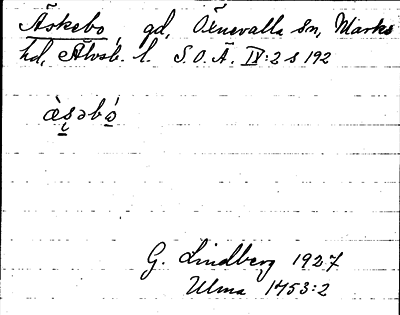 Äskebo, gd, Öxnevalla sn, Marks
hd, Älvsb. l. S.O.Ä. IV:2 s 192
æ̀s̨əbó̠
G. Lindberg 1927
Ulma 1453:2